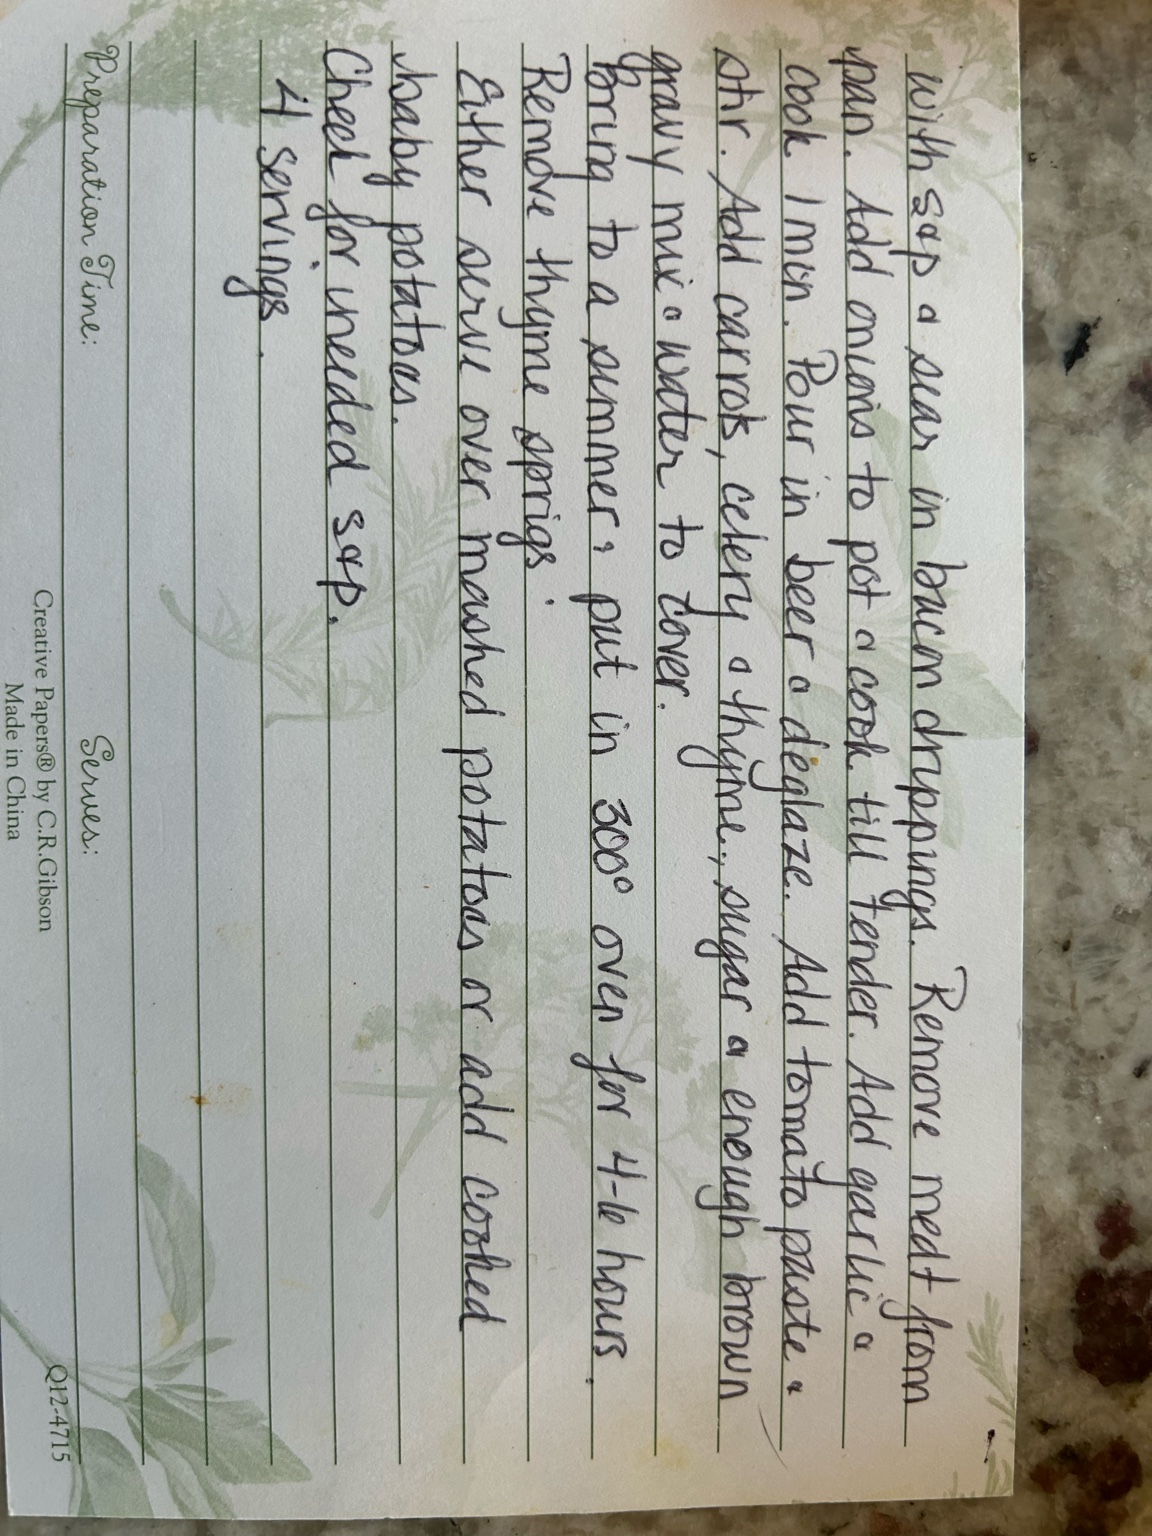 with s&p & sear in bacon drippings. Remove meat from
pan. Add onions to pot & cook till tender. Add garlic &
cook 1 min. Pour in beer & deglaze. Add tomato paste &
stir. Add carrots, celery & thyme, sugar & enough brown
gravy mix & water to cover.
Bring to a simmer & put in 300° oven for 4-6 hours.
Remove thyme sprigs.
Either serve over mashed potatoes or add cooked
baby potatoes.
Check for uneeded s&p.
4 servings.
Preparation Time: Serves:
Creative Papers® by C.R.Gibson
Made in China
Q12-4715